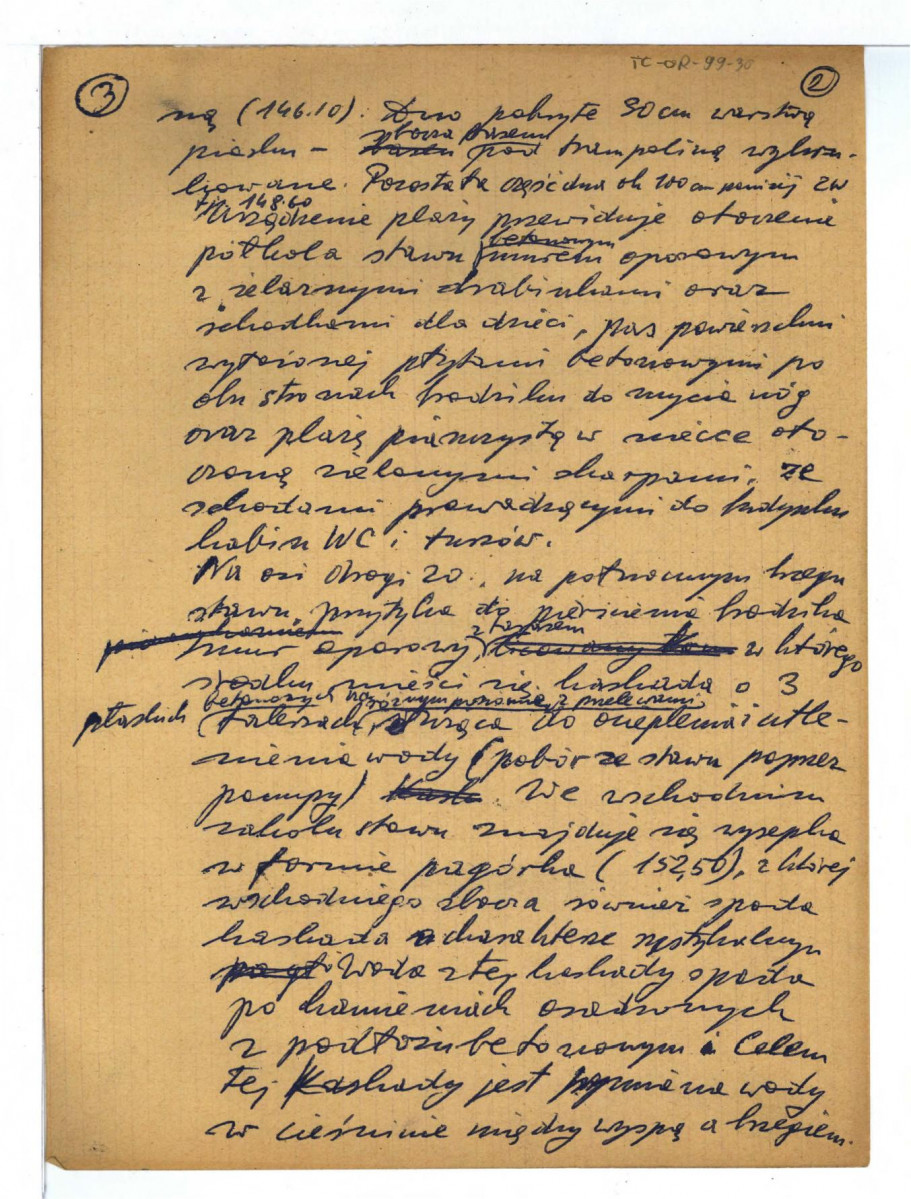 TC-OR-99-30
3
2
ną (146.10). Dno pokryte 30 cm warstwą
zbocza basenu
piasku – basen pod trampoliną wybru-
kowane. Pozostała część dna ok 100 cm poniżej zw
tj. 148.60
Urządzenie plaży przewiduje otoczenie
półkola stawu betonowym murem oporowym
z żelaznymi drabinkami oraz
schodkami dla dzieci, pas powierzchni
wyłożonej płytami betonowymi po
obu stronach brodziku do mycia nóg
oraz plażę piaszczystą w niecce oto-
czoną zielonymi skarpami, ze
schodami prowadzącymi do budynku
kabin WC i tuszów.
Na osi drogi 20, na północnym brzegu
stawu, przytyka do pierścienia brodzika
mur oporowy z tarasem w którego
środku mieści się kaskada o 3
płaskich betonowych na różnym poziomie z przelewami
talerzach, służąca do ocieplenia i utle-
nienia wody (pobór ze stawu poprzez
pompy). We wschodnim
zakolu stawu znajduje się wysepka
w formie pagórka (152,50), z której
wschodniego zbocza również spada
kaskada o charakterze rustykalnym
Woda z tej kaskady spada
po kamieniach osadzonych
z podłożu betonowym. Celem
tej Kaskady jest wymiana wody
w cieśninie między wyspą a brzegiem.